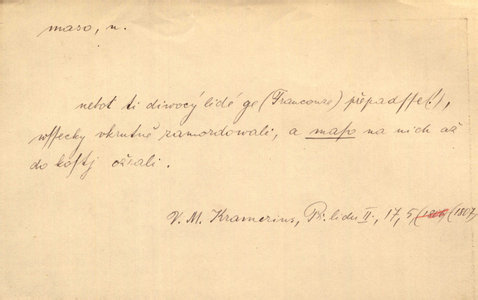 maso, n.
nebot ti diwocý lidé ge (Francouze) přepadsse(!),
wssecky vkrutně zamordowali, a maso na nich až
do kostj ožrali.
V. M. Kramerius, Př. lidu II., 17, 5, (1807)